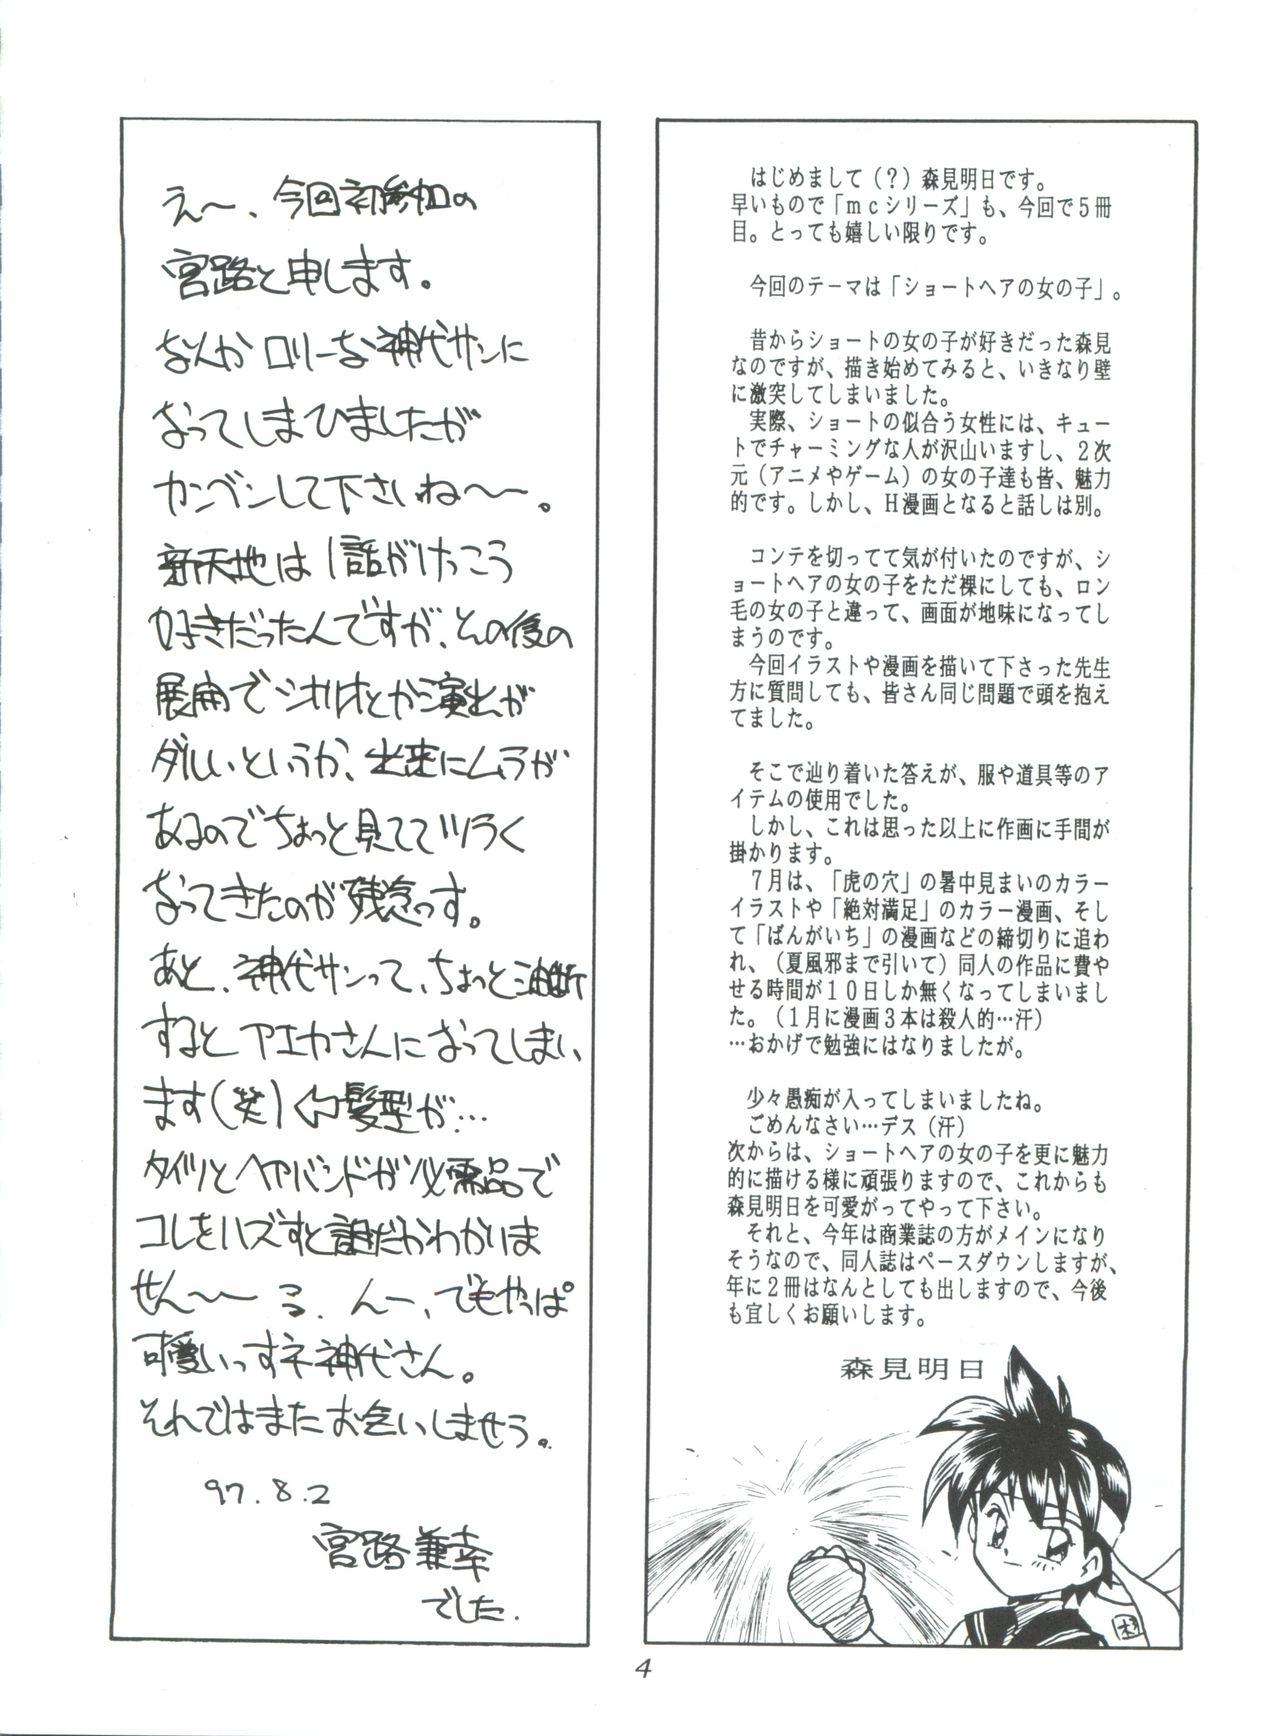 はじめまして(?)森見明日です。
早いもので「mcシリーズ」も、今回で5冊
目。とっても嬉しい限りです。
今回のテーマは「ショートヘアの女の子」。
昔からショートの女の子が好きだった森見
なのですが、描き始めてみると、いきなり壁
に激突してしまいました。
実際、ショートの似合う女性には、キュー
トでチャーミングな人が沢山いますし、2次
元(アニメやゲーム)の女の子達も皆、魅力
的です。しかし、H漫画となると話しは別。
コンテを切ってて気が付いたのですが、シ
ョートヘアの女の子をただ裸にしても、ロン
毛の女の子と違って、画面が地味になってし
まうのです。
今回イラストや漫画を描いて下さった先生
方に質問しても、皆さん同じ問題で頭を抱え
てました。
そこで辿り着いた答えが、服や道具等のア
イテムの使用でした。
しかし、これは思った以上に作画に手間が
掛かります。
7月は、「虎の穴」の暑中見まいのカラー
イラストや「絶対満足」のカラー漫画、そし
て「ばんがいち」の漫画などの締切りに追わ
れ、(夏風邪まで引いて)同人の作品に費や
せる時間が10日しか無くなってしまいまし
た。(1月に漫画3本は殺人的…汗)
…おかげで勉強にはなりましたが。
少々愚痴が入ってしまいましたね。
ごめんなさい…デス(汗)
次からは、ショートヘアの女の子を更に魅力
的に描ける様に頑張りますので、これからも
森見明日を可愛がってやって下さい。
それと、今年は商業誌の方がメインになり
そうなので、同人誌はペースダウンしますが、
年に2冊はなんとしても出しますので、今後
も宜しくお願いします。
森見明日
え〜、今回初参加の
宮路と申します。
なんかロリーな神代サンに
なってしまひましたが
カンベンして下さいね〜〜。
新天地は1話がけっこう
好きだったんですが、その後の
展開でシナリオとか演出が
ダルいというか、出来にムラが
あるのでちょっと見ててツラく
なってきたのが残念っす。
あと、神代サンって、ちょっと油断
するとアエカさんになってしまい
ます(笑)⇦髪型が…
タイツとヘアバンドが必需品で
コレをハズすと誰だかわかりま
せん〜〜 んー、でもやっぱ
可愛いっすネ神代さん。
それではまたお会いしませう。
97.8.2
宮路兼幸
でした.
4